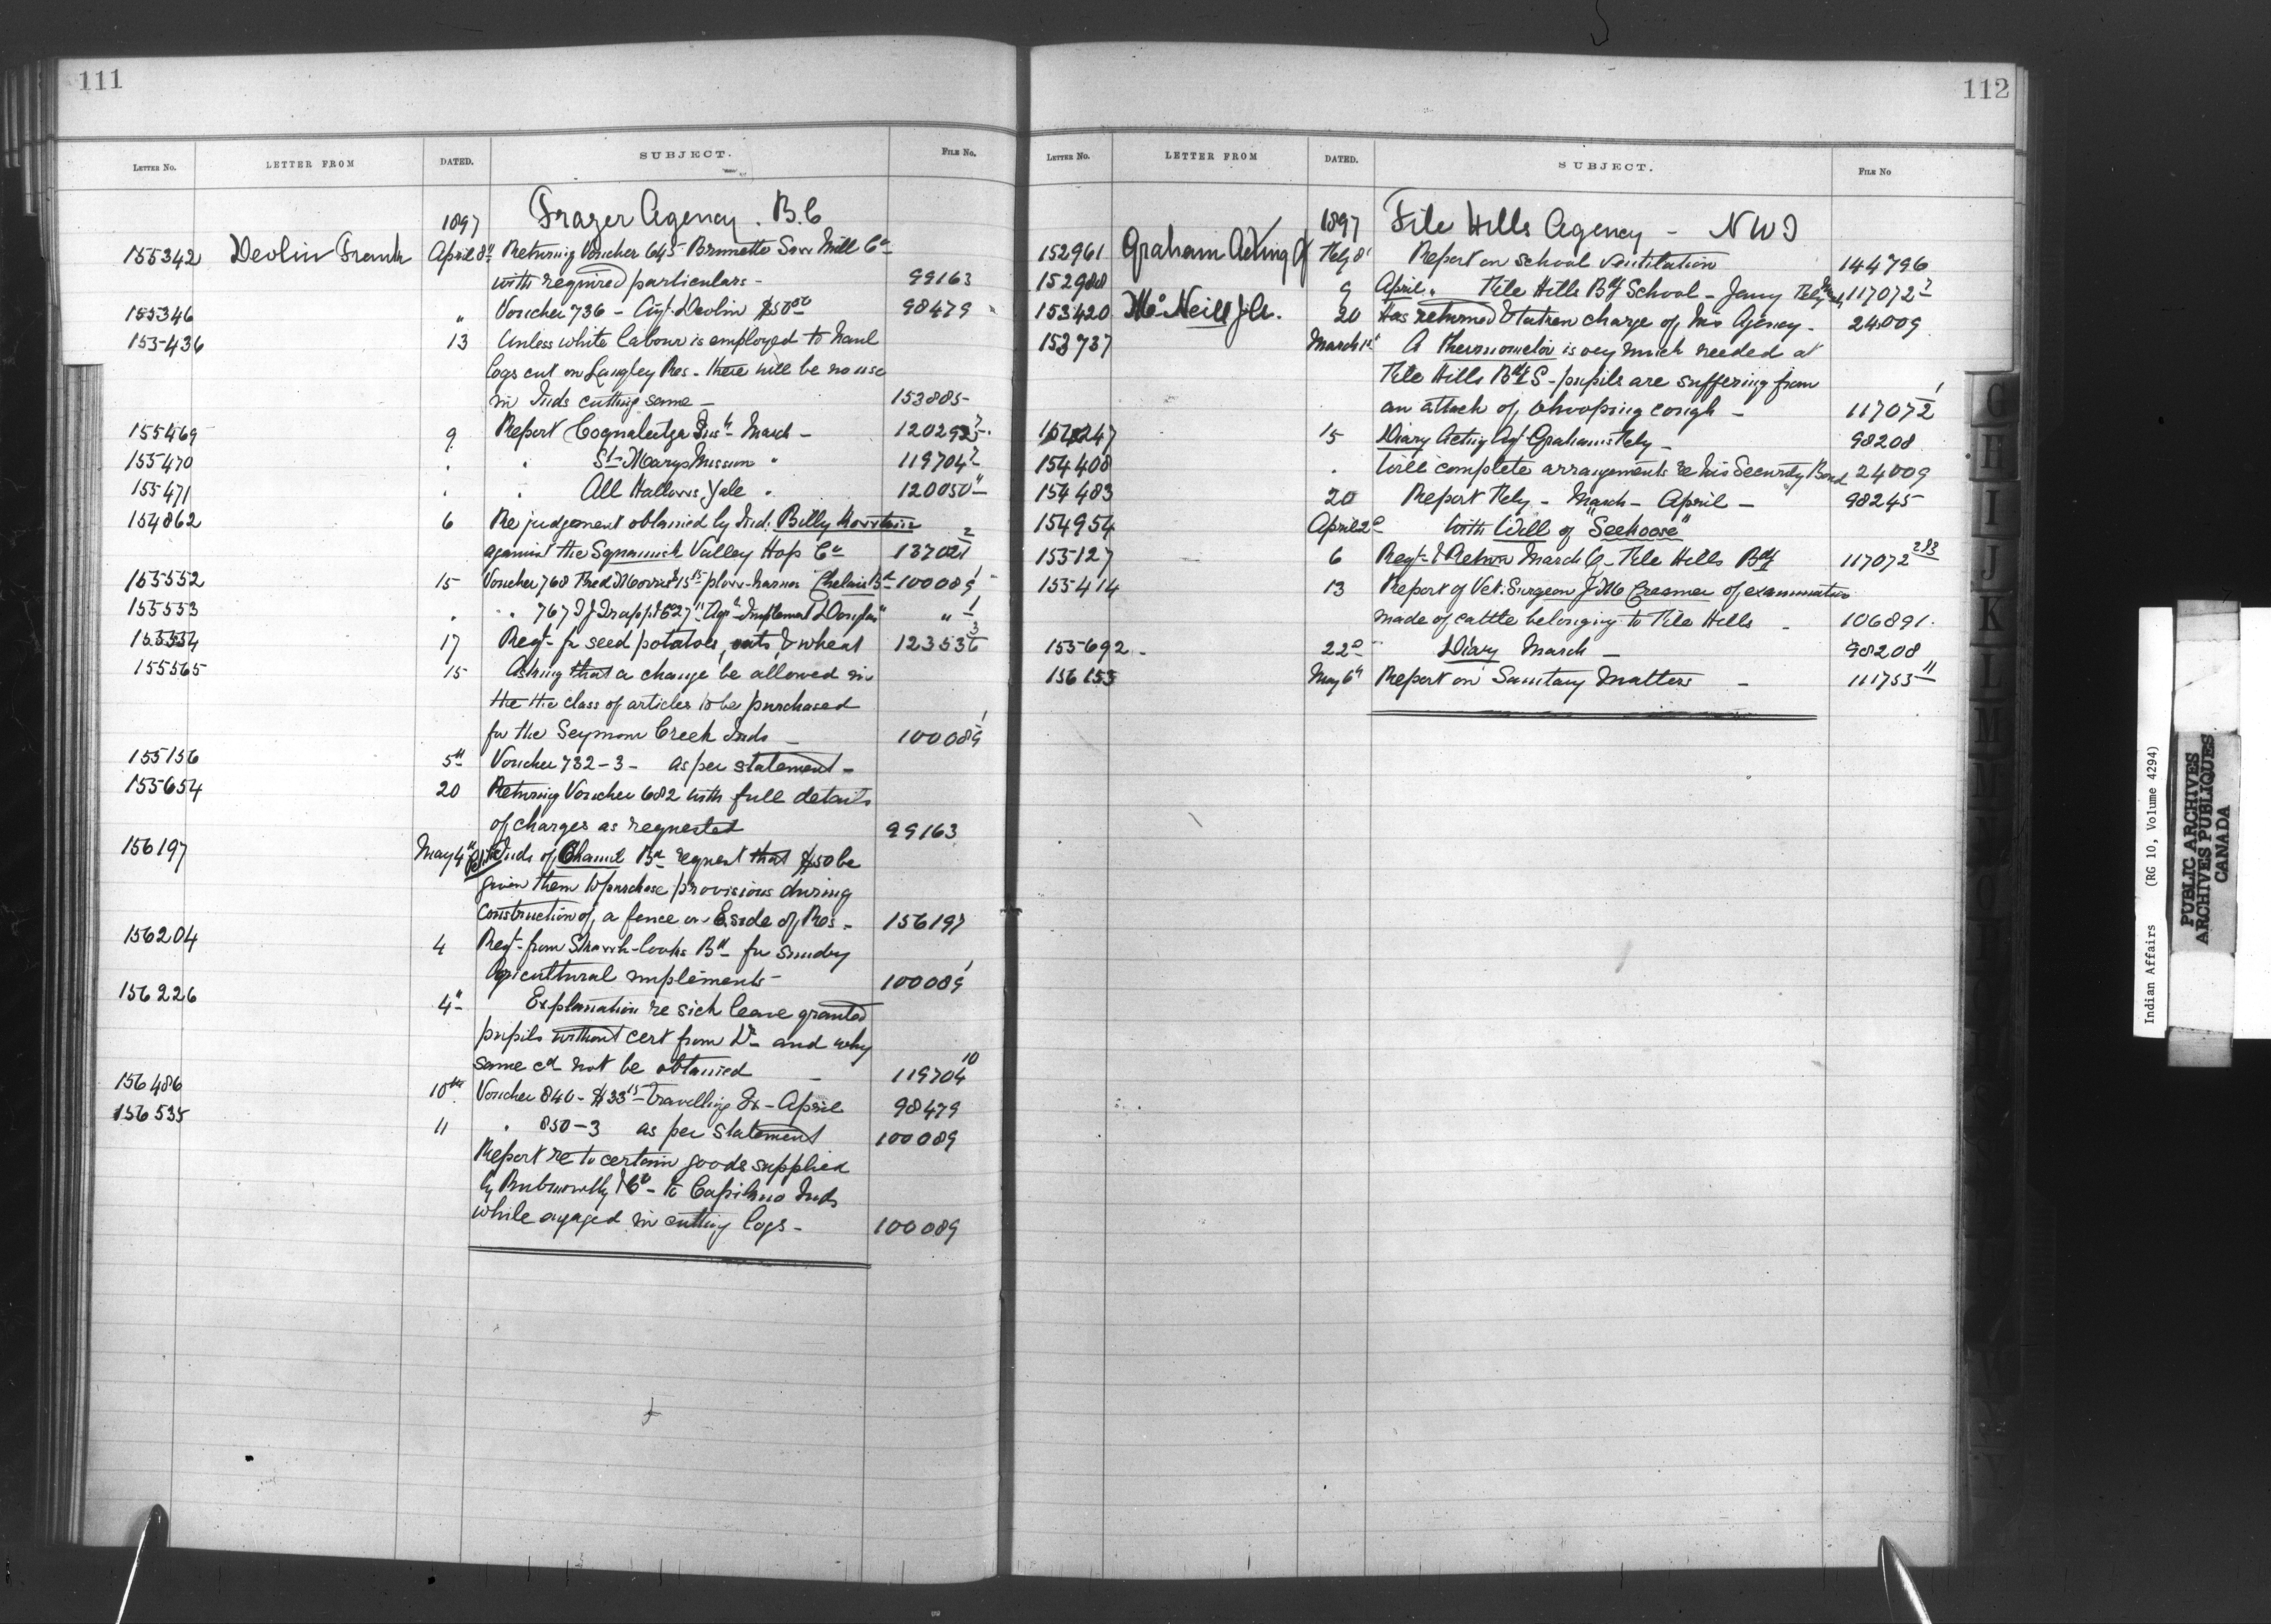 111
LETTER NO. LETTER FROM DATED. SUBJECT. FILE No.
1897 Frazer Agency. B.C
155342 Devlin Frank April 8th Returning Voucher 645 Brunette Saw Mill Co
with required particulars - 99163
155346 " Voucher 736 - Agt. Devlin $50 98479
155436 13 Unless white labour is employed to haul
logs cut on Langley Res - there will be no use
in Inds cutting same - 153885
155469 9 Report Coqualeetza Insn - March - 120292
155470 " " St Marys Mission " 119704
155471 " " All Hallows, Yale " 120050
154862 6 Re judgement obtained by Ind. Billy
against the Squamish Valley Hop Co 13702
155552 15 Voucher 768 plow-harness Bd 100089
155553 " " 767 T J Trapp Agl Implements Douglas " " 1
155554 17 Reqt. for seed potatoes, oats, & wheat 123536 3
155565 15 Asking that a change be allowed in
the the class of articles to be purchased
for the Seymour Creek Inds - 100089 1
155156 5th Voucher 732-3- as per statement -
155654 20 Returning Voucher 682 with full details
of charges as requested 99163
156197 May 4th Inds of Bd request that $50 be
given them to purchase provisions during
construction of a fence on E side of Res - 156197
156204 4 Reqt. from Bd - for sundry
Agricultural implements - 100089 1
156226 4th Explanation re sick leave granted
pupils without cert from Dr - and why
same cd not be obtained - 119704 10
156486 10th Voucher 840 - $33 15 travelling Ex - April 98479
156535 11 " 850-3 as per statement 100089
Report re to certain goods supplied
by & Co - to Capilano Inds
while engaged in cutting logs - 100089
112
LETTER NO. LETTER FROM DATED. SUBJECT. FILE No
1897 File Hills Agency - NWT
152961 Graham Acting Feby 8 Report on school ventilation 144796
152988 9 April " File Hills Bdg School - Jany Feby 117072
153420 McNeill 20 Has returned & taken charge of his Agency - 24009
153737 March 1st A thermometer is very much needed at
File Hills Bdg S - pupils are suffering from
an attack of whooping cough - 117072 1
154247 15 Diary Acting Agt Grahams Feby - 98208
154408 " Will complete arrangements re his Security Bond 24009
154483 20 Report Feby - March - April - 98245
154954 April 2d With Will of "Seehoose"
155127 6 Reqt. & Return March Q - File Hills Bdg 117072 2&3
155414 13 Report of Vet. Surgeon Creamer of examination
made of cattle belonging to File Hills - 106891
155692 - 22d Diary March - 98208
156155 May 6th Report on Sanitary Matters - 111753 11
G
H
I
J
K
L
M
Indian Affairs (RG 10, Volume 4294)
PUBLIC ARCHIVES
ARCHIVES PUBLIQUES
CANADA